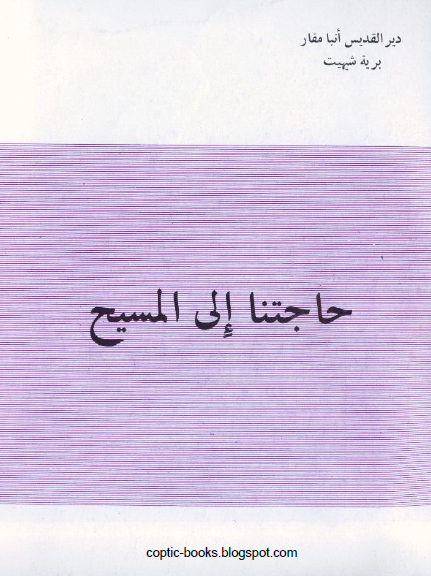 دير القديس أنبا مقار
برية شيهيت
حاجتنا إلى المسيح
coptic-books.blogspot.com